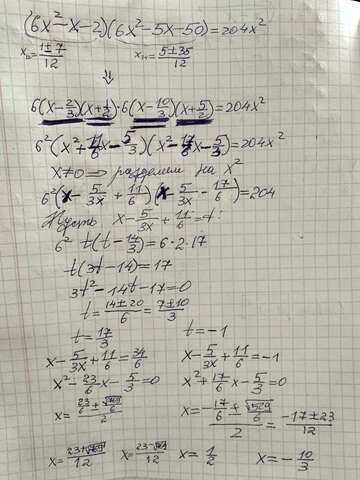 (6x²-x-2)(6x²-5x-50)=204x²
x₁₂=(1±7)/12 x₁₂=(5±35)/12
⇓
6(x-2/3)(x+1/2)·6(x-10/3)(x+5/2)=204x²
6²(x²+11/6x-5/3)(x²-17/6x-5/3)=204x²
x≠0 ⇒ разделим на x²
6²(x-5/3x+11/6)(x-5/3x-17/6)=204
Пусть x-5/3x+11/6=t
6² t(t-14/3)=6·2·17
t(3t-14)=17
3t²-14t-17=0
t=(14±20)/6=(7±10)/3
t=17/3 t=-1
x-5/3x+11/6=34/6 x-5/3x+11/6=-1
x²-23/6x-5/3=0 x²+17/6x-5/3=0
x=(23/6±√769/6)/2 x=(-17/6±√529/6)/2=(-17±23)/12
x=(23+√769)/12 x=(23-√769)/12 x=1/2 x=-10/3